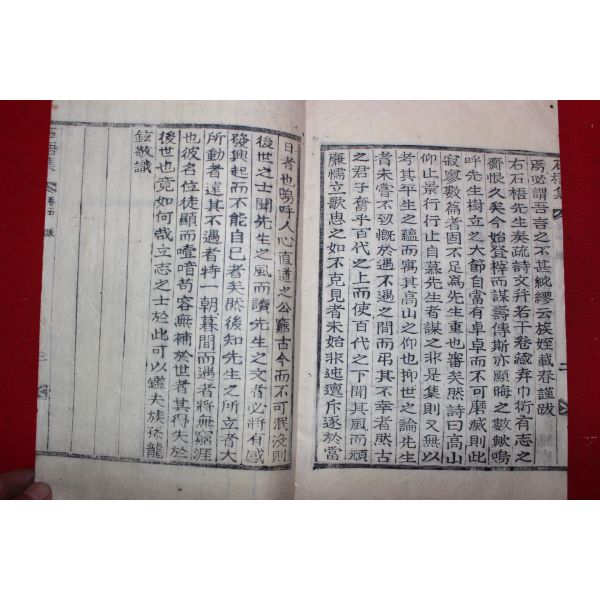 焉必謂吾言之不甚紕繆云族姪載春謹跋
右石梧先生奏疏詩文幷若干卷藏弆巾衍有志之
齎恨久矣今始登梓而謀壽傳斯亦顯晦之數歟嗚
呼先生樹立之大節自當有卓卓而不可磨滅則此
寂寥數篇者固不足爲先生重也審矣然詩曰高山
仰止景行行止自慕先生者謀之非是集則又無以
考其平生之蘊而寓其高山之仰也抑世之論先生
者未嘗不致慨於遇不遇之間而吊其不幸者然古
之君子奮乎百代之上而使百代之下聞其風而頑
廉懦立歌思之如不克見者未始非迍邅斥逐於當
日者也嗚呼人心直道之公窮古今而不可泯沒則
後世之士聞先生之風而讀先生之文者必將有感
發興起而不能自已者矣然後知先生之所立者大
所動者遠其不遇者特一朝暮間而遇者將無窮涯
也彼名位徒顯而噎喑苟容無補於世者其得失於
後世也竟如何哉立志之士於此可以鑑夫族孫龍
鉉敬識
石梧集
卷五 跋
石梧集
二